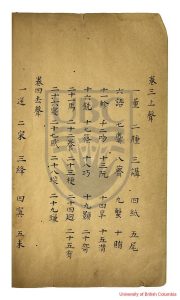 卷三上聲
一董 二種 三講 四紙 五尾
六語 七麌 八薺 九蟹 十賄
十一軫 十二吻 十三阮 十四旱 十五潸
十六銑 十七篠 十八巧 十九顥 二十哿
二十一馬 二十二養 二十三梗 二十四迥 二十五有
二十六寢 二十七感 二十八 二十九豏
卷四去聲
一送 二宋 三絳 四寘 五未
University of British Columbia